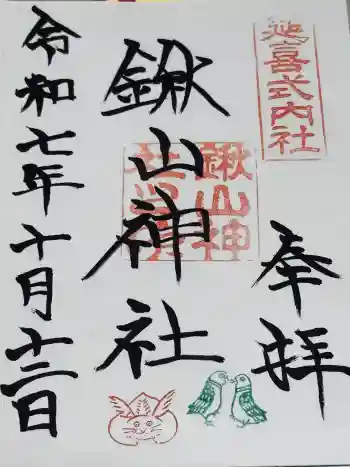 延喜式内社
奉拝
鍬山神社
鍬山神社
令和七年十月十二日